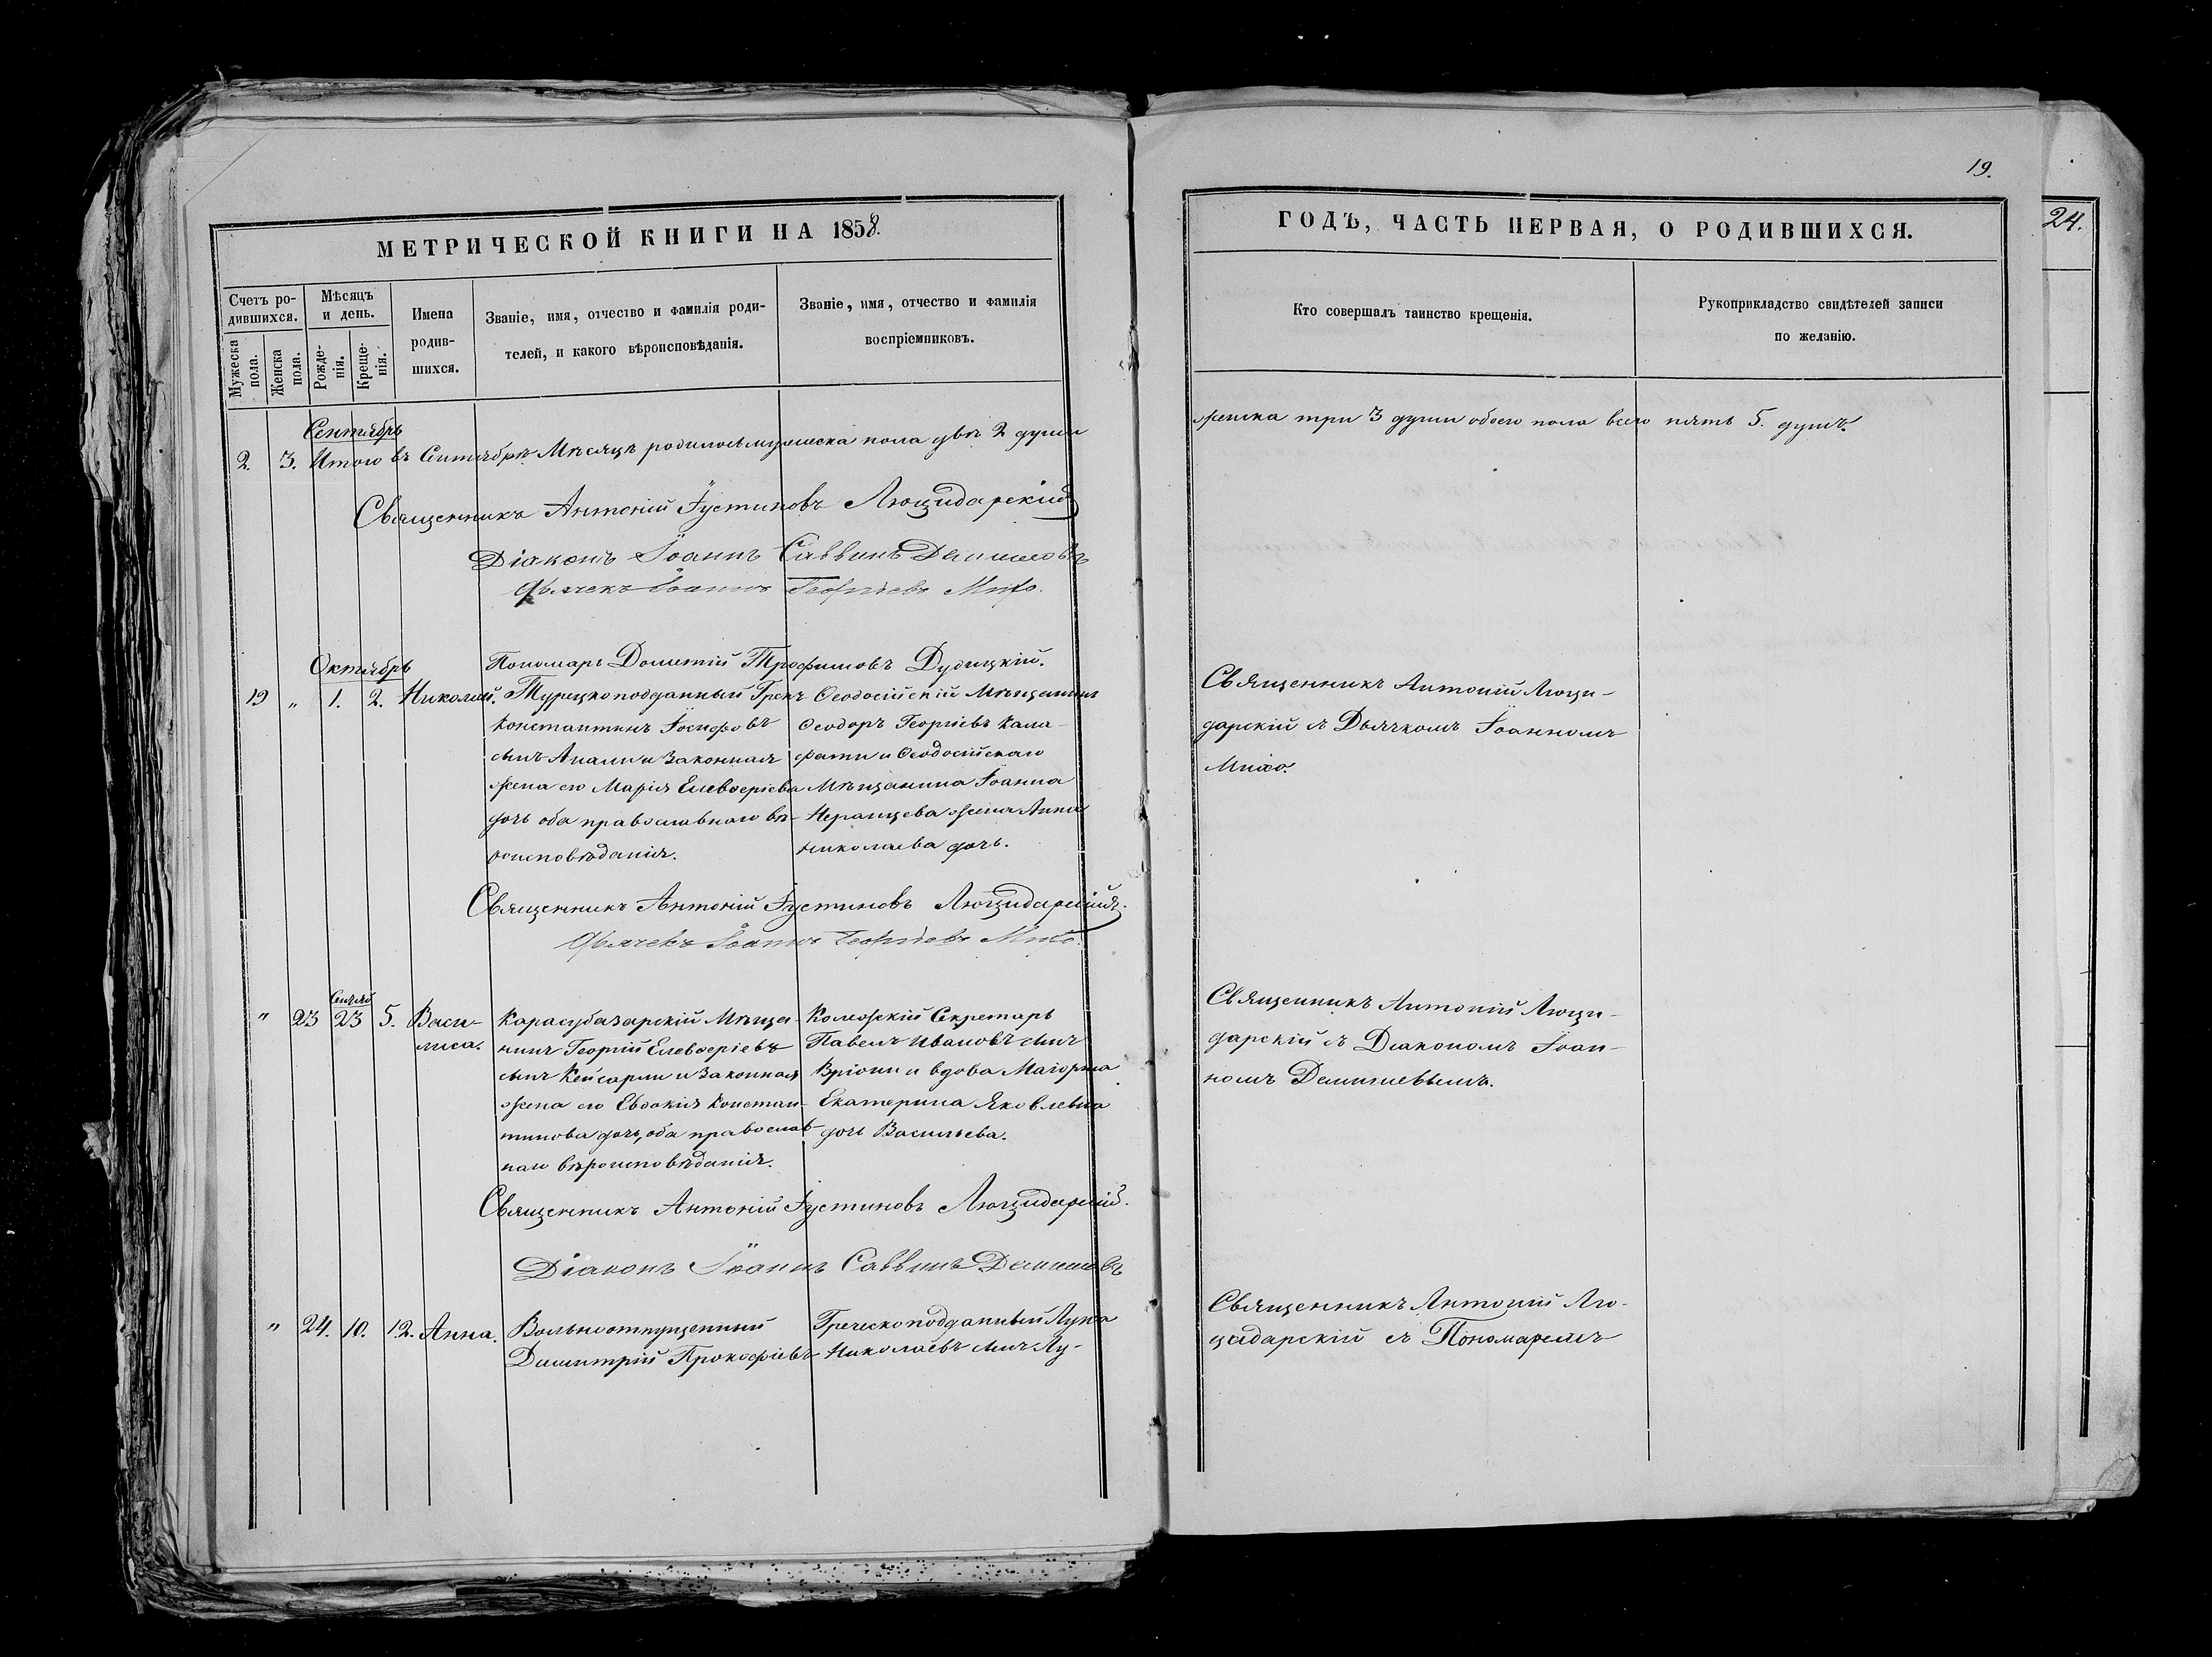 19.
24.
МЕТРИЧЕСКОЙ КНИГИ НА 1858.
ГОДЪ, ЧАСТЬ ПЕРВАЯ, О РОДИВШИХСЯ.
Счетъ ро-
дившихся.
Мужеска
пола.
Женска
пола.
Мѣсяцъ
и день.
Рожде-
нія.
Креще-
нія.
Имена
родив-
шихся.
Званіе, имя, отчество и фамилія роди-
телей, и какого вѣроисповѣданія.
Званіе, имя, отчество и фамилія
воспріемниковъ.
Кто совершалъ таинство крещенія.
Рукоприкладство свидѣтелей записи
по желанію.
Сентябрь
2. 3. Итого въ Сентябрѣ Мѣсяцѣ родилось мужеска пола двѣ 2 души
женска три 3 души обоего пола всего пять 5. душъ.
Священникъ Антоній Іустиновъ Люцидарскій
Діаконъ Іоаннъ Саввинъ
Дьячекъ Іоаннъ Георгіевъ Михо.
Пономарь Дометій Трофимовъ Дубицкій.
Октябрь
19 „ 1. 2. Николай.
Турецкоподданный Грекъ
Константинъ Іосифовъ
сынъ и законная
жена его Марія Елевѳеріева
дочь оба православнаго вѣ-
роисповѣданія.
Ѳеодосійскій Мѣщанинъ
Ѳеодоръ Георгіевъ Кала-
фати и Ѳеодосійскаго
Мѣщанина Іоанна
Неранцева жена Анна
Николаева дочь.
Священникъ Антоній Люци-
дарскій съ Дьячкомъ Іоанномъ
Михо.
Священникъ Антоній Іустиновъ Люцидарскій.
Дьячекъ Іоаннъ Георгіевъ Михо.
„ 23 23 5. Васи-
лиса.
Карасубазарскій Мѣща-
нинъ Георгій Елевѳеріевъ
сынъ Кейсарли и законная
жена его Евдокія Констан-
тинова дочь, оба православ-
наго вѣроисповѣданія.
Коллежскій Секретарь
Павелъ Ивановъ сынъ
Вріони и вдова Маіорша
Екатерина Яковлевна
дочь Васильева.
Священникъ Антоній Люци-
дарскій съ Діакономъ Іоан-
номъ
Священникъ Антоній Іустиновъ Люцидарскій.
Діаконъ Іоаннъ Саввинъ
„ 24. 10. 12. Анна.
Вольноотпущенный
Димитрій Прокофіевъ
Греческоподданный Лука
Николаевъ сынъ Лу-
Священникъ Антоній Лю-
цидарскій съ Пономаремъ